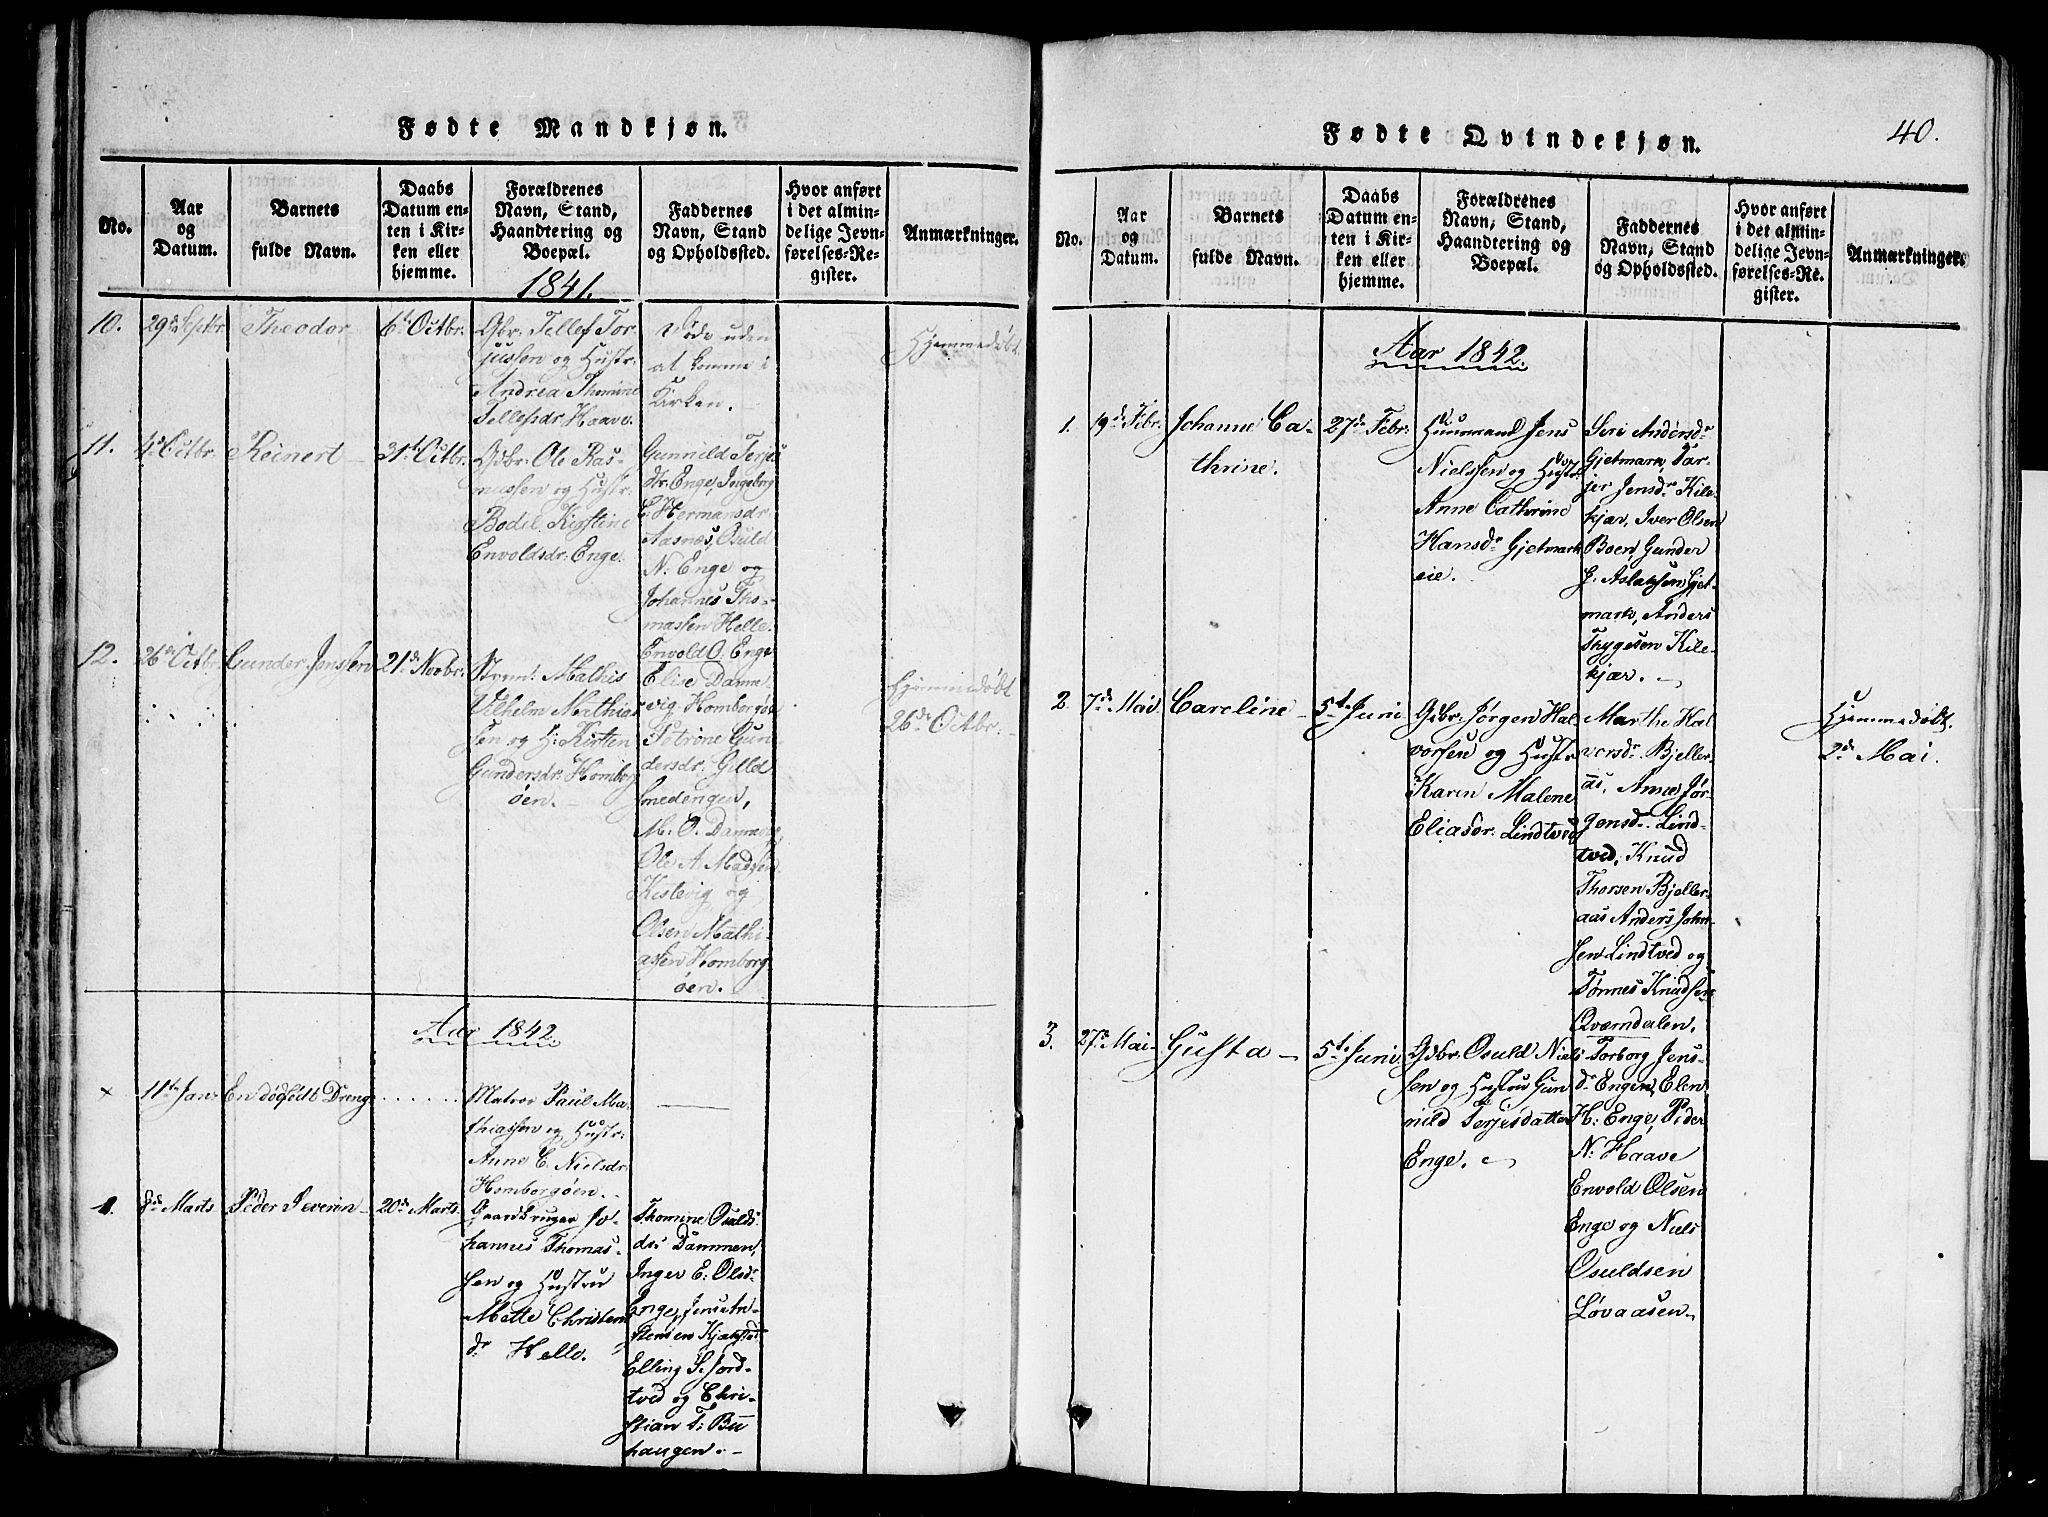 Fødte Mandkjøn.
No.
Aar
og
Datum.
Barnets
fulde Navn.
Daabs
Datum en-
ten i Kir-
ken eller
hjemme.
Forældrenes
Navn, Stand,
Haandtering og
Boepæl.
1841.
Faddernes
Navn, Stand
og Opholdssted.
Hvor anført
i det almin-
delige Jevn-
førelses-Re-
gister.
Anmærkninger.
10.
29de Septbr.
Theodor
6te Octbr.
Gbr. Tellef Tor-
jussen og Hustr.
Andrea Thomine
Tellefsdr. Haave.
Døde uden
at komme i
Kirken.
Hjemmedøbt
11.
4de Octbr.
Reinert
31te Octbr.
Gdbr. Ole Ras-
mussen og Hustr.
Bodil Kirstine
Envoldsdr. Enge.
Gunnild Terjes
dr. Enge, Ingeborg
E. Hermansdr
Aasnæs, Osuld
N. Enge og
Johannes Tho-
massen Helle.
Envold O. Enge
12.
26de Octbr.
Gunder Jenssen
21de Novbr.
Strm. Mathis
Vilhelm Mathias
sen og H. Kirsten
Gundersdr. Homborg
øen.
Elise Danne-
vig, Homborgøe
Petrine Gun-
dersdr. Gilld
smedengen,
M. O. Dannevig,
Ole A. Madsen
Kistevig og
Olsen Mathi-
assen Homborg
øen.
Hjemmedøbt
26de Octbr.
Aar 1842.
×
11te Jan.
En dødfødt Dreng
Matros Paul Ma-
thiassen og Hustr.
Anne C. Nielsdr.
Homborgøen.
1.
8de Marts
Peder Severin
20de Marts
Gaardbruger Jo-
hannes Thomas-
sen og Hustru
Mette Christens
dr Helle.
Thomine Osulds
dr. Dammen,
Inger E. Olsdr
Enge, Jens An-
stensen Kjæsted
Elling S. Jord-
tved og Chri-
stian T. Bu
haugen.
Fødte Qvindekjøn.
40.
No.
Aar
og
Datum.
Barnets
fulde Navn.
Daabs
Datum en-
ten i Kir-
ken eller
hjemme.
Forældrenes
Navn, Stand,
Haandtering og
Boepæl.
Faddernes
Navn, Stand
og Opholdssted.
Hvor anført
i det almin-
delige Jevn-
førelses-Re-
gister.
Anmærkninger.
Aar 1842.
1.
19de Febr.
Johanne Ca-
thrine.
27de Febr.
Huusmand Jens
Nielssen og Hustr.
Anne Cathrine
Hansdr Gjetmark
eie.
Siri Andersdr
Gjetmark, Tar-
jer Jensdr Kile-
kjær, Iver Olsen
Boen, Gunder
G. Aslaksen Gjet
mark, Anders
Thygesen Kile-
kjær.
2.
7de Mai
Careline
5te Juni
Gdbr. Jørgen Hal
vorsen og Hustr
Karen Malene
Eliasdr. Lindtved
Marthe Hal
vorsdr. Bjeller-
as, Anne Jør-
gensdr. Lind-
tved, Knud
Thorsen Bjeller-
aas Anders John
sen Lindtved og
Tønnes Knudsen
Qværndalen.
Hjemmedøbt.
2de Mai.
3.
27de Mai
Gusta
5te Juni
Gdbr. Osuld Niels
sen og Hustru Gun
nild Terjesdatter
Enge.
Torborg Jens-
dr Engen, Elen
H. Enge, Peder
N. Haave
Envold Olsen
Enge og Niels
Osuldsen
Løvaasen